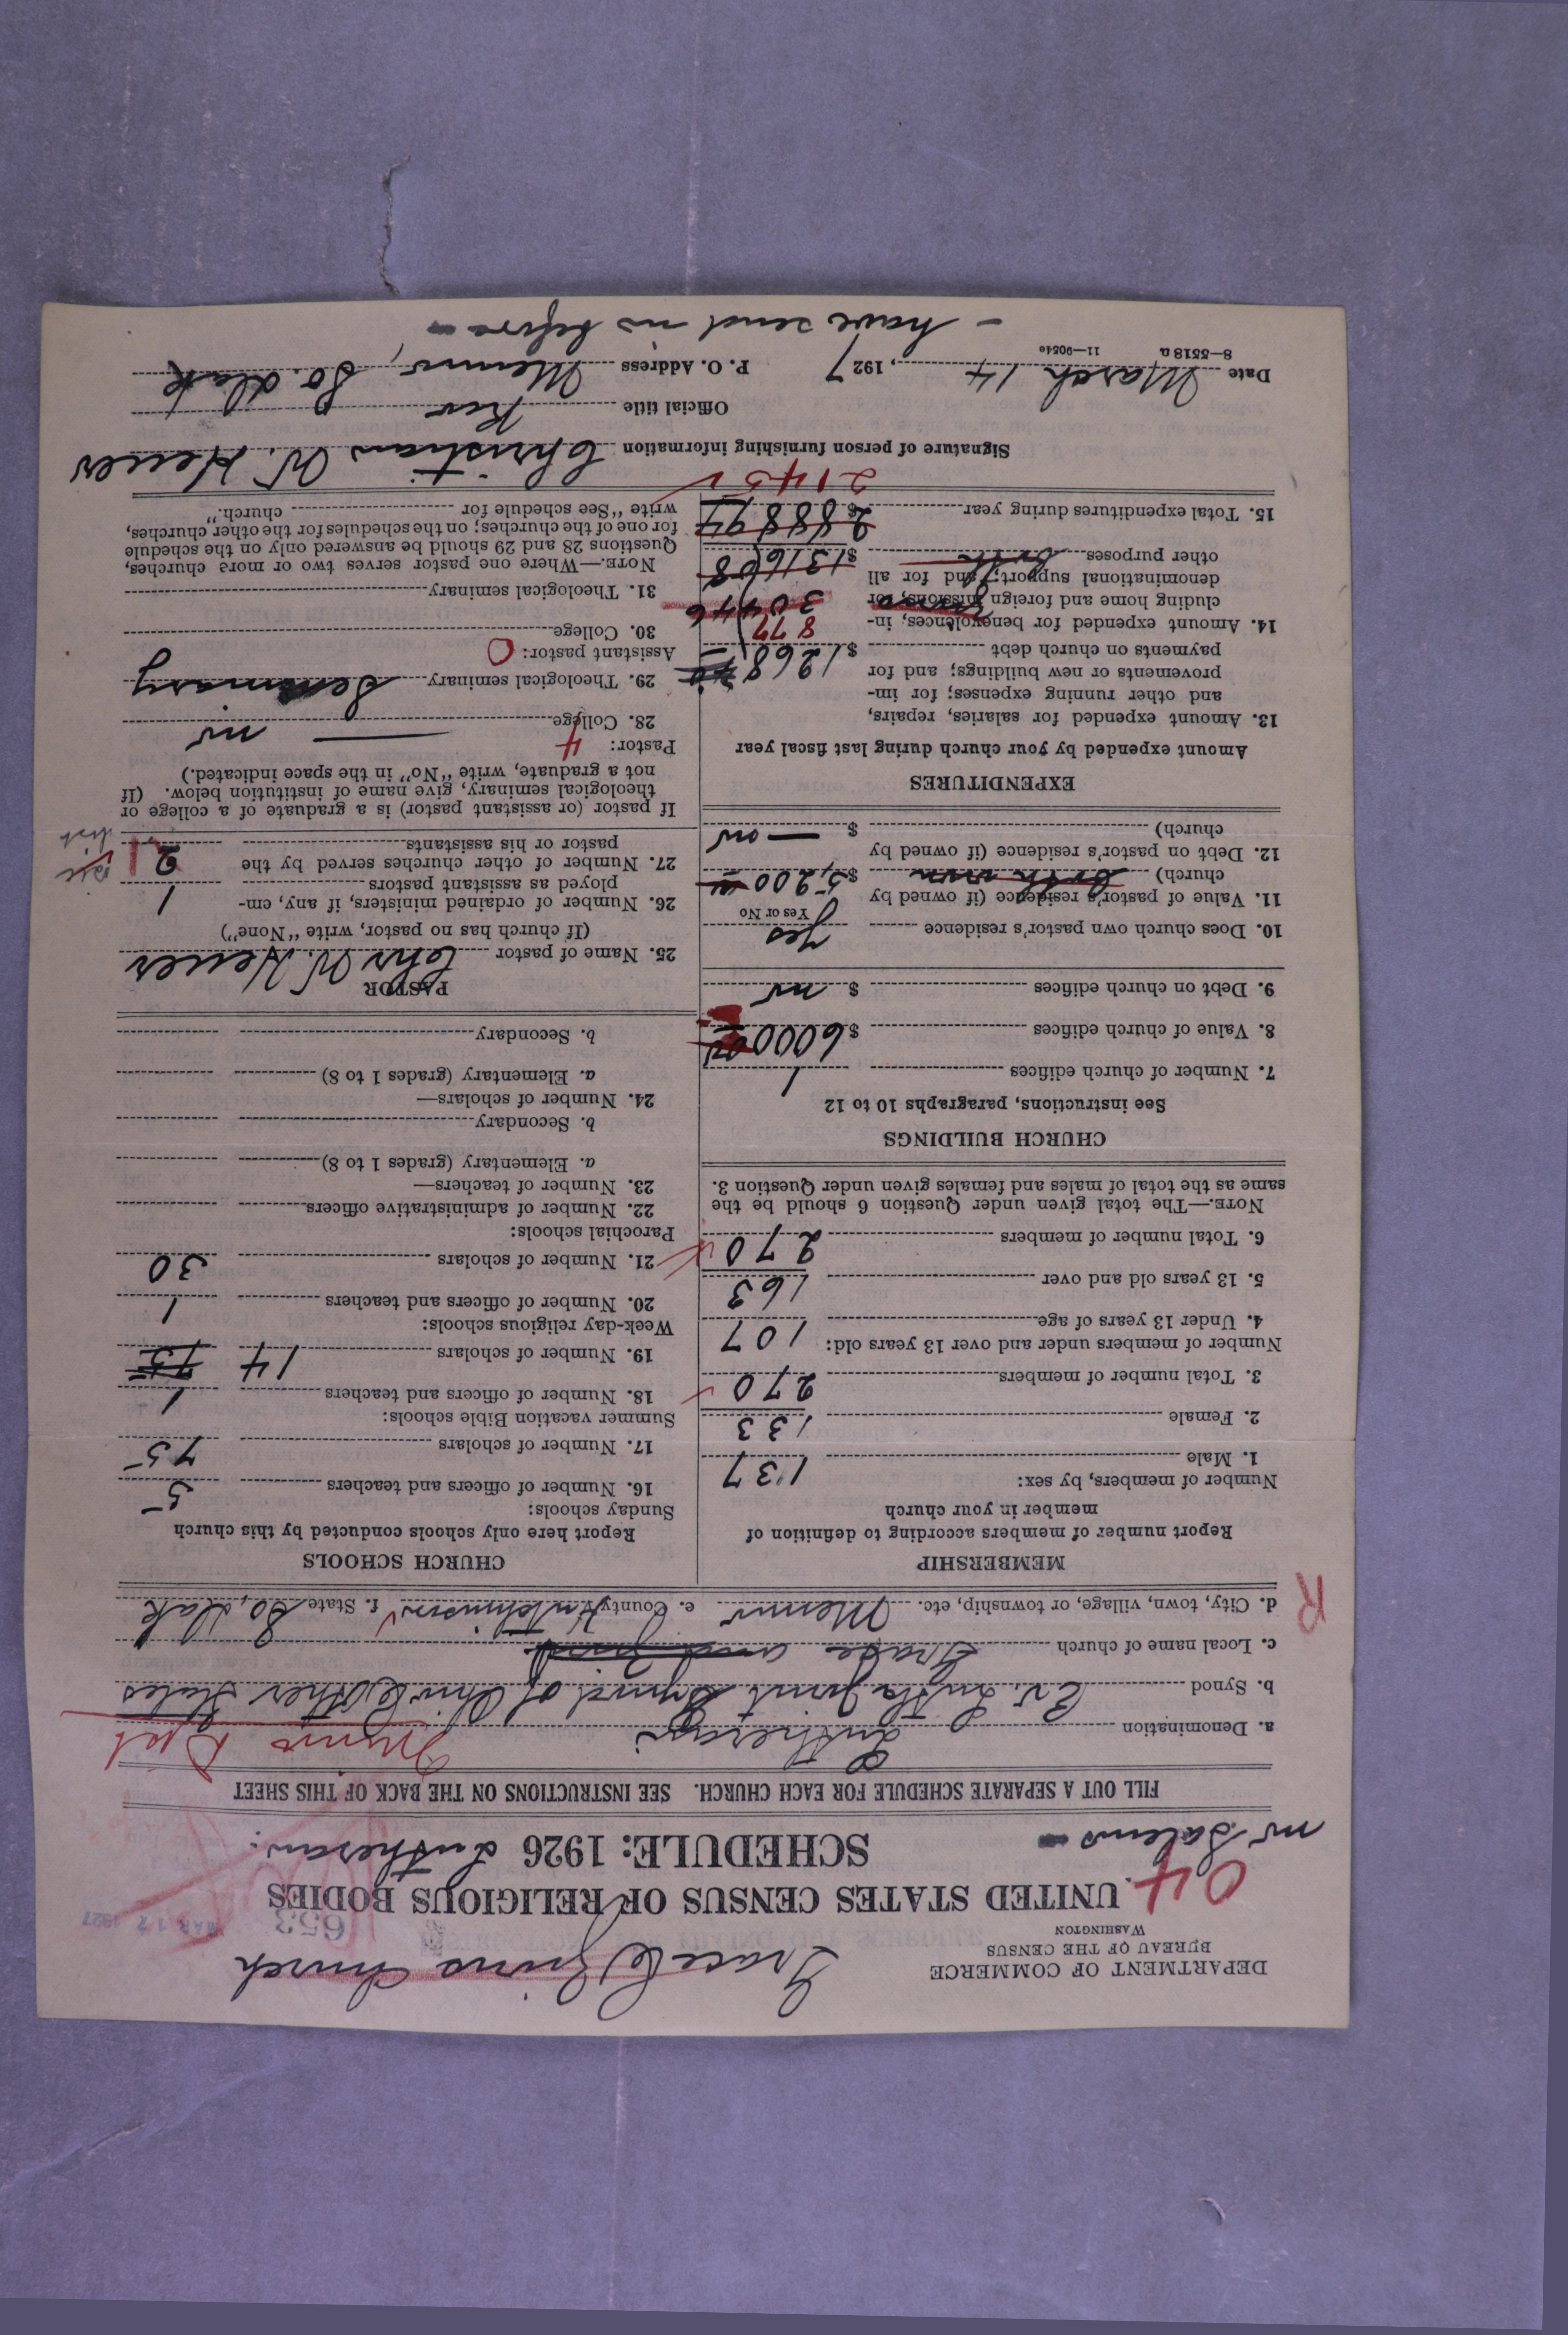 DEPARTMENT OF COMMERCE
BUREAU OF THE CENSUS
WASHINGTON
Grace & Zions Church
653
MAR 17 1927
04
UNITED STATES CENSUS OF RELIGIOUS BODIES
mr Salems
SCHEDULE: 1926 Lutheran.
FILL OUT A SEPARATE SCHEDULE FOR EACH CHURCH. SEE INSTRUCTIONS ON THE BACK OF THIS SHEET
a. Denomination Lutheran
b. Synod Ev. Luth. Joint Synod of Ohio & Other States
c. Local name of church Grace and
d. City, town, village, or township, etc. Menno e. County Hutchinson f. State So. Dak
R
MEMBERSHIP
Report number of members according to definition of
member in your church
Number of members, by sex:
1. Male 137
2. Female 133
3. Total number of members 270
Number of members under and over 13 years old:
4. Under 13 years of age 107
5. 13 years old and over 163
6. Total number of members 270
NOTE.—The total given under Question 6 should be the
same as the total of males and females given under Question 3.
CHURCH BUILDINGS
See instructions, paragraphs 10 to 12
7. Number of church edifices 1
8. Value of church edifices $6000
9. Debt on church edifices $ no
10. Does church own pastor's residence yes
Yes or No
11. Value of pastor's residence (if owned by
church) $5,200
12. Debt on pastor's residence (if owned by
church) $ — no
EXPENDITURES
Amount expended by your church during last fiscal year
13. Amount expended for salaries, repairs,
and other running expenses; for im-
provements or new buildings; and for
payments on church debt $1268
14. Amount expended for benevolences, in- 877
cluding home and foreign missions; for 304 46
denominational support; and for all
other purposes both $1316 08
15. Total expenditures during year $2888 97
2145
CHURCH SCHOOLS
Report here only schools conducted by this church
Sunday schools:
16. Number of officers and teachers 5
17. Number of scholars 75
Summer vacation Bible schools:
18. Number of officers and teachers 1
19. Number of scholars 14 75
Week-day religious schools:
20. Number of officers and teachers 1
21. Number of scholars 30
Parochial schools:
22. Number of administrative officers
23. Number of teachers—
a. Elementary (grades 1 to 8)
b. Secondary
24. Number of scholars—
a. Elementary (grades 1 to 8)
b. Secondary
PASTOR
25. Name of pastor Chr W. Heuer
(If church has no pastor, write "None")
26. Number of ordained ministers, if any, em-
ployed as assistant pastors 1
27. Number of other churches served by the
pastor or his assistants 2 1
If pastor (or assistant pastor) is a graduate of a college or
theological seminary, give name of institution below. (If
not a graduate, write "No" in the space indicated.)
Pastor: 4
28. College — no
29. Theological seminary Seminary
Assistant pastor: 0
30. College
31. Theological seminary
NOTE.—Where one pastor serves two or more churches,
Questions 28 and 29 should be answered only on the schedule
for one of the churches; on the schedules for the other churches,
write "See schedule for church."
Signature of person furnishing information Christian W. Heuer
Official title Rev
Date March 14, 1927 P. O. Address Menno, So. Dak
8—5518 a 11—9054c
— have send in before —